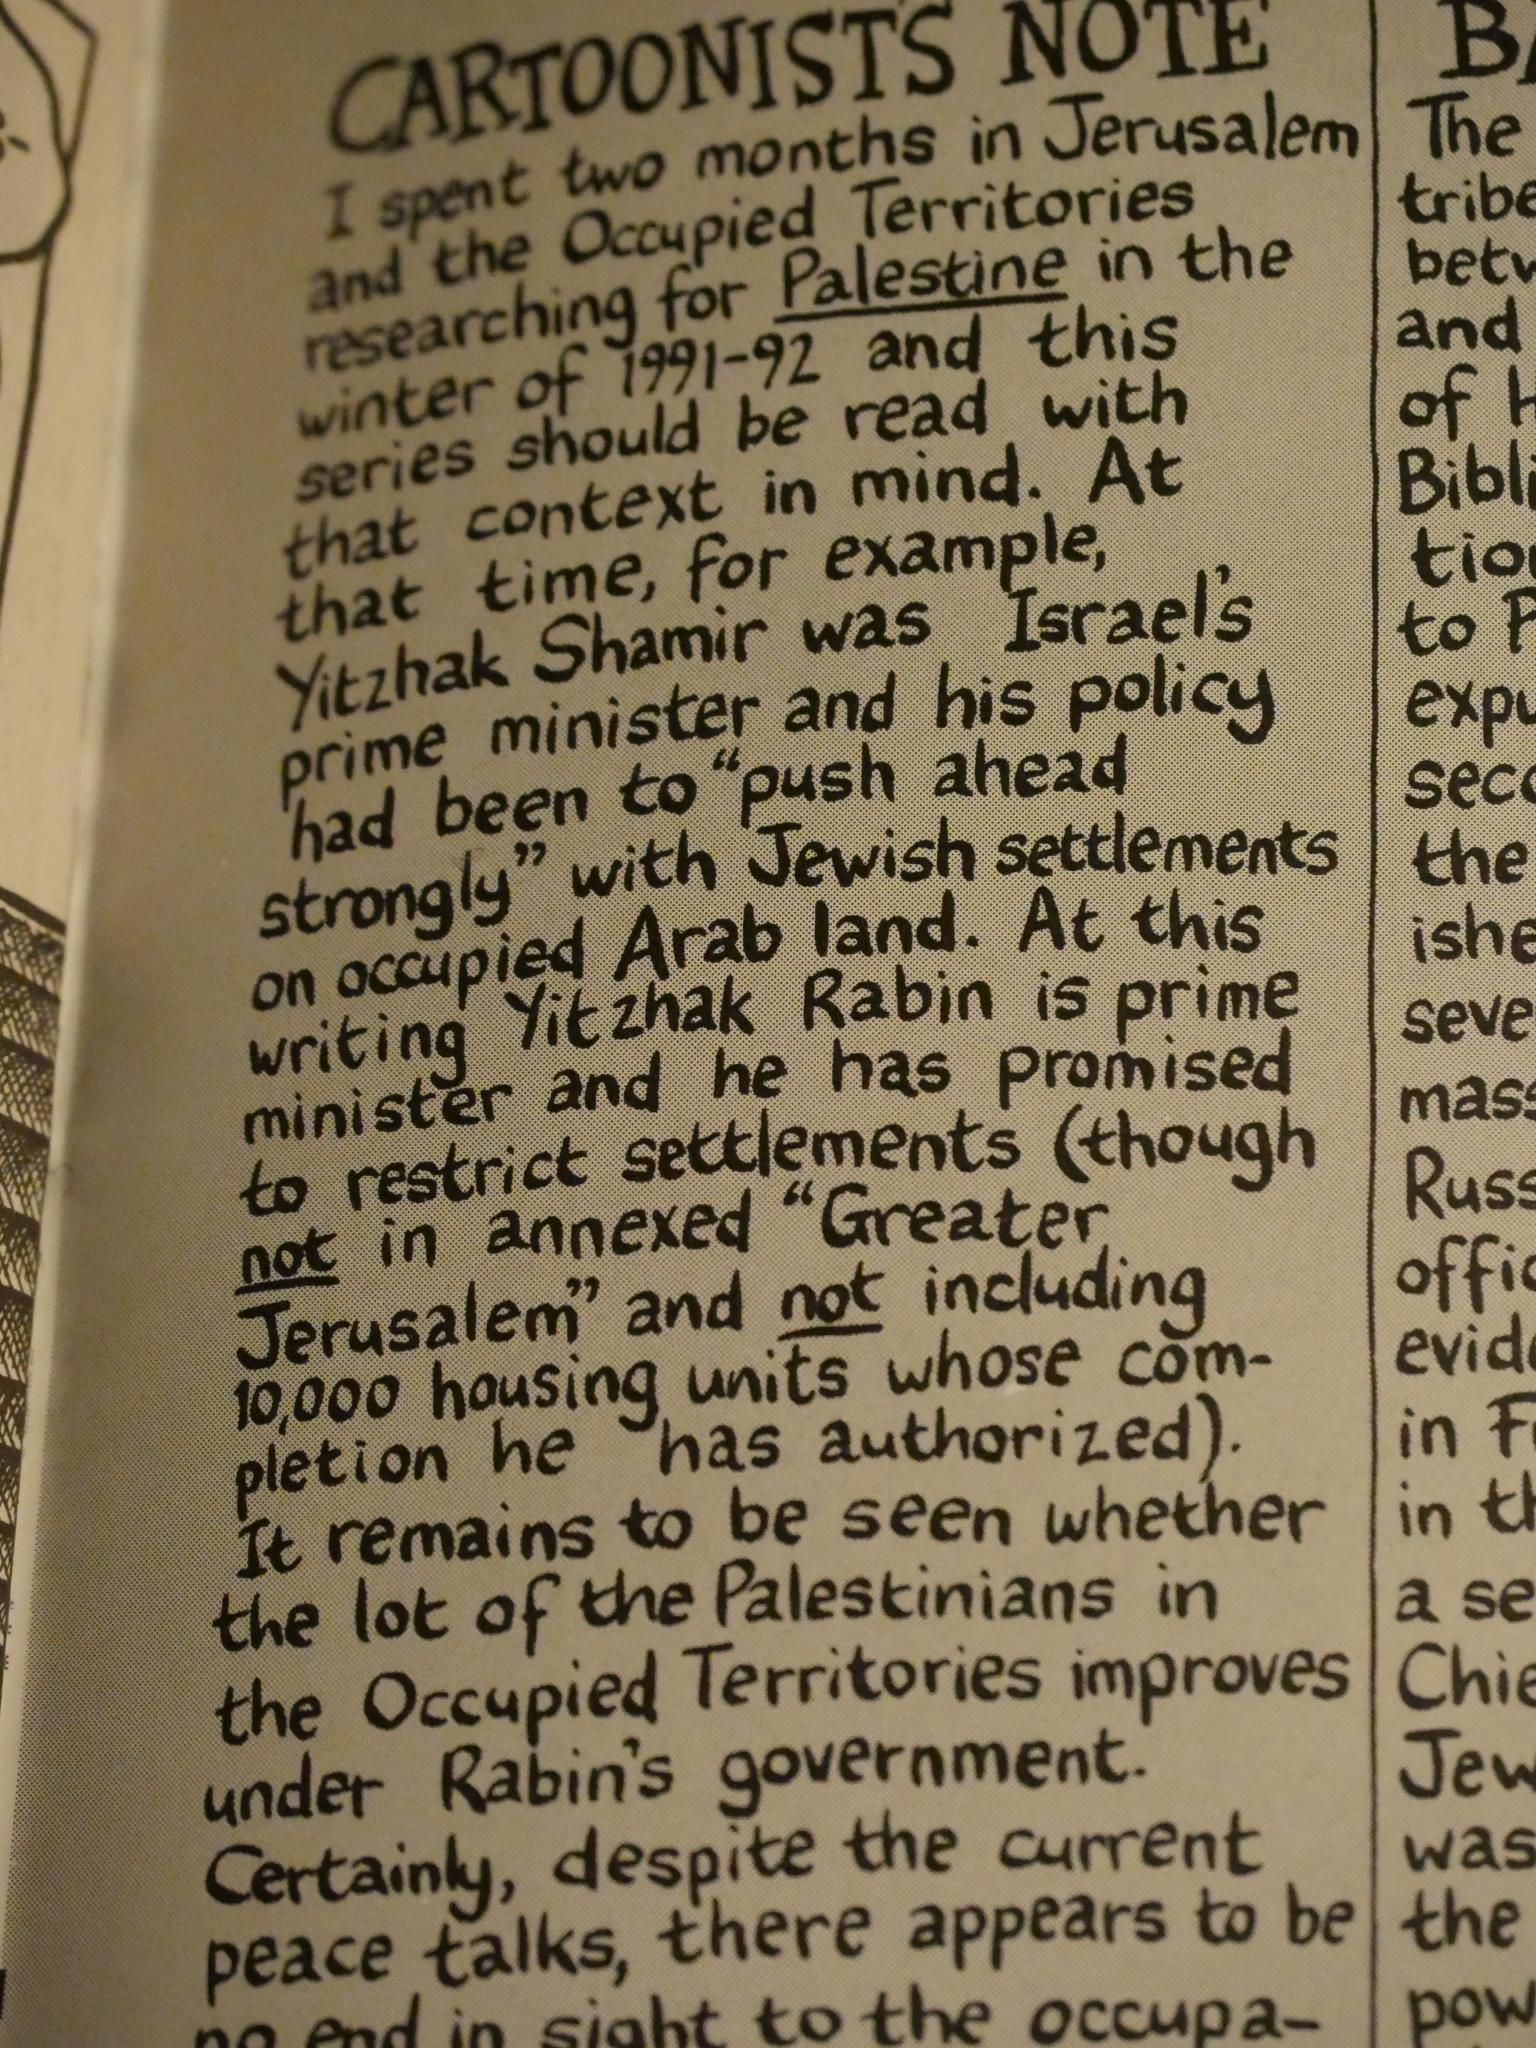 CARTOONIST'S NOTE
I spent two months in Jerusalem
and the Occupied Territories
researching for Palestine in the
winter of 1991-92 and this
series should be read with
that context in mind. At
that time, for example,
Yitzhak Shamir was Israel's
prime minister and his policy
had been to "push ahead
strongly" with Jewish settlements
on occupied Arab land. At this
writing Yitzhak Rabin is prime
minister and he has promised
to restrict settlements (though
not in annexed "Greater
Jerusalem" and not including
10,000 housing units whose com-
pletion he has authorized).
It remains to be seen whether
the lot of the Palestinians in
the Occupied Territories improves
under Rabin's government.
Certainly, despite the current
peace talks, there appears to be
no end in sight to the occupa-
The
tribe
betw
and
of H
Bibli
tion
to P
expu
seco
the
ishe
seve
mass
Russ
offic
evide
in F
in th
a se
Chie
Jew
was
the
pow